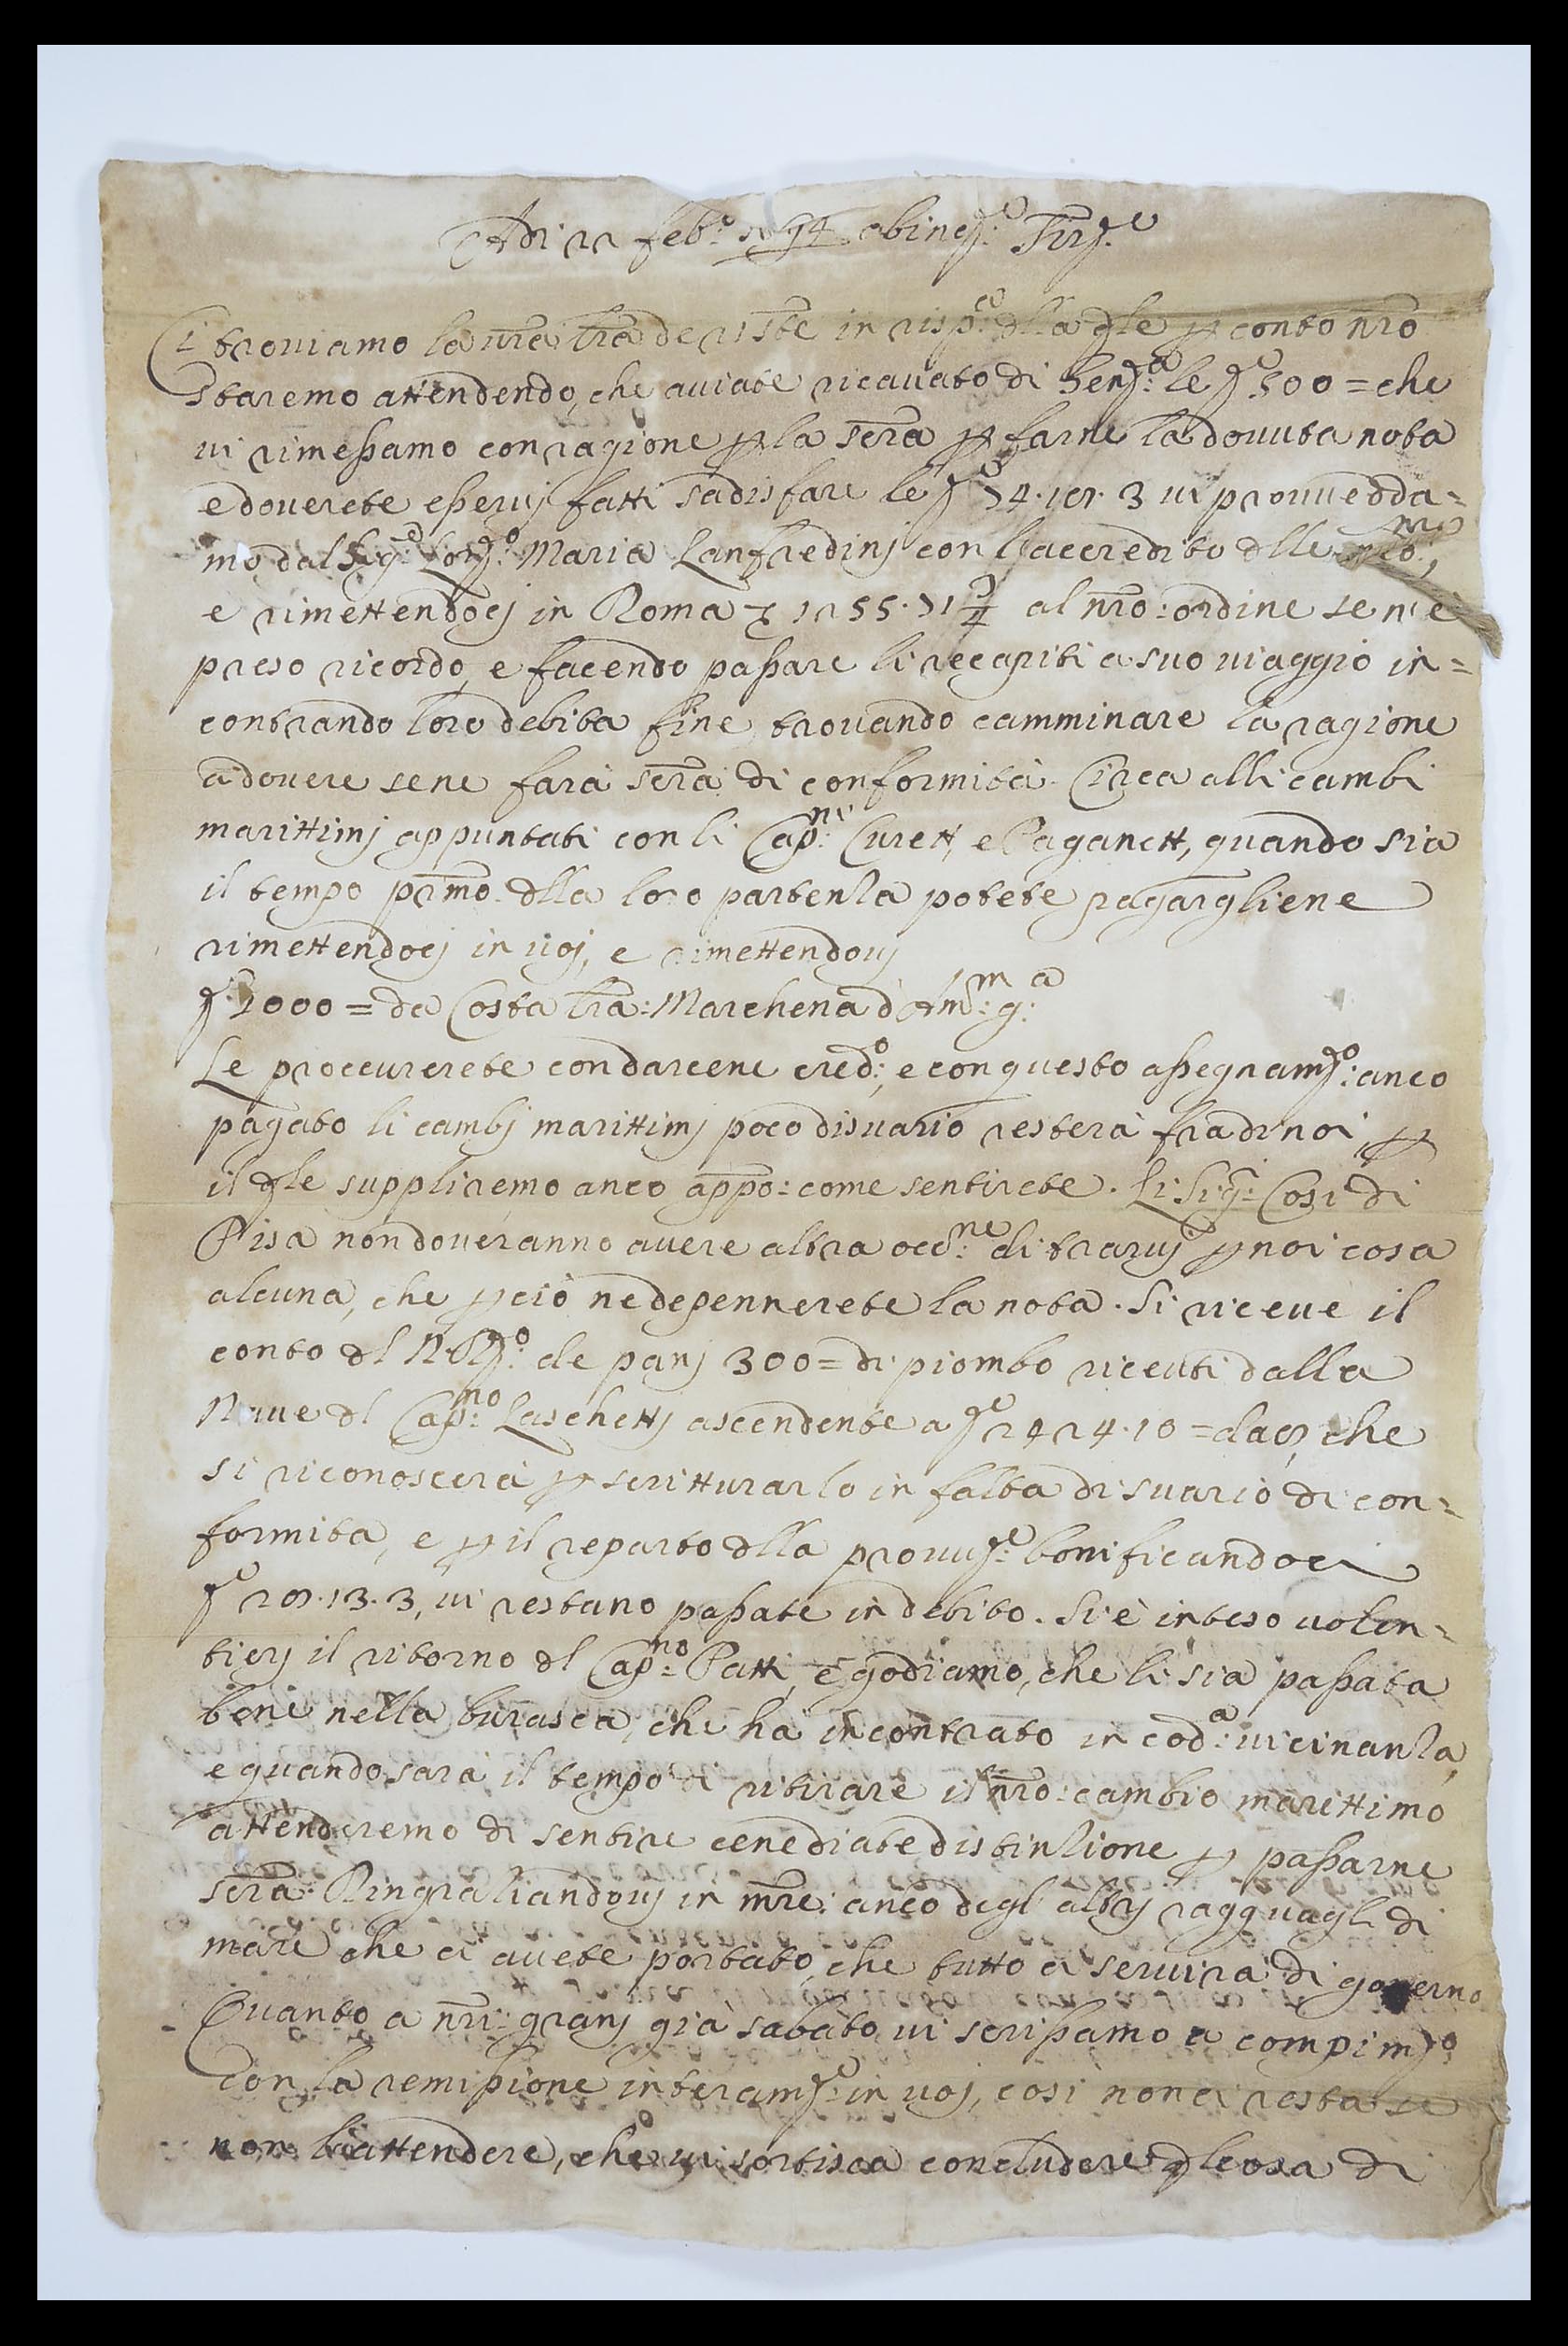 Adi 22 feb:o abine: Firze
Ci troviamo la vra: lra: de 21 ste in risp:e dlla qle p conto nro
staremo attendendo, che aviate ricavato di le 500 = che
vi rimessamo con ragione p la serra p farne la dovuta nota
e doverete esservj fatti sadisfare le 74. 3 vi provvedda=
mo dal Sig:e Lorzo: Maria Lanfredinj con l'accredito dlle
e rimettendocj in Roma 1255.71 3/4 al nro: ordine se n'è
preso ricordo, e facendo passare li recapiti a suo viaggio in=
contrando loro debita fine, trovando camminare la ragione
a dovere se ne farà serra di conformità. Circa alli cambi
marittimj appuntati con li Cap:ni Curett, e Paganett, quando sia
il tempo prmo: dlla loro partenza potete pagargliene
rimettendocj in voj, e rimettendovj
1000 = da Costa lra: Marchena d'Am:m g:a
Le proccurerete con darcene cred:o, e con questo assegnamzo: anco
pagato li cambj marittimj poco disvario resterà fra di noi, p
il qle suppliremo anco appo: come sentirete. Li Sig:ri Cosi di
Pisa non doveranno avere altra occ:ne di trarvj p noi cosa
alcuna, che p ciò ne depennerete la nota. Si riceve il
conto dl de panj 300 = di piombo riceuti dalla
Nave dl Cap:no Laschettj ascendente a 2424.10 = che
si riconoscerà p scritturarlo in falta di svario di con=
formita, e p il reparto dlla provvze: bonificandoci
13.3, vi restano passate in debito. Si è inteso volen=
tierj il ritorno dl Cap:no Patti, e godiamo, che li sia passata
bene nella burasca, che ha incontrato in cod:a vicinanza,
e quando sarà il tempo di ritirare il nro: cambio marittimo
attenderemo di sentire ce ne diate distinzione p passarne
serra: Ringraziandovj in mre: anco degl'altrj ragguagli di
mare che ci avete portato, che tutto ci servirà di governo
Quanto a nri: granj già sabato vi scrissamo a compimzo:
con la remissione interamze: in voj, cosi non ci resta se
non l'attendere, che vi sortisca concludere qlcosa di